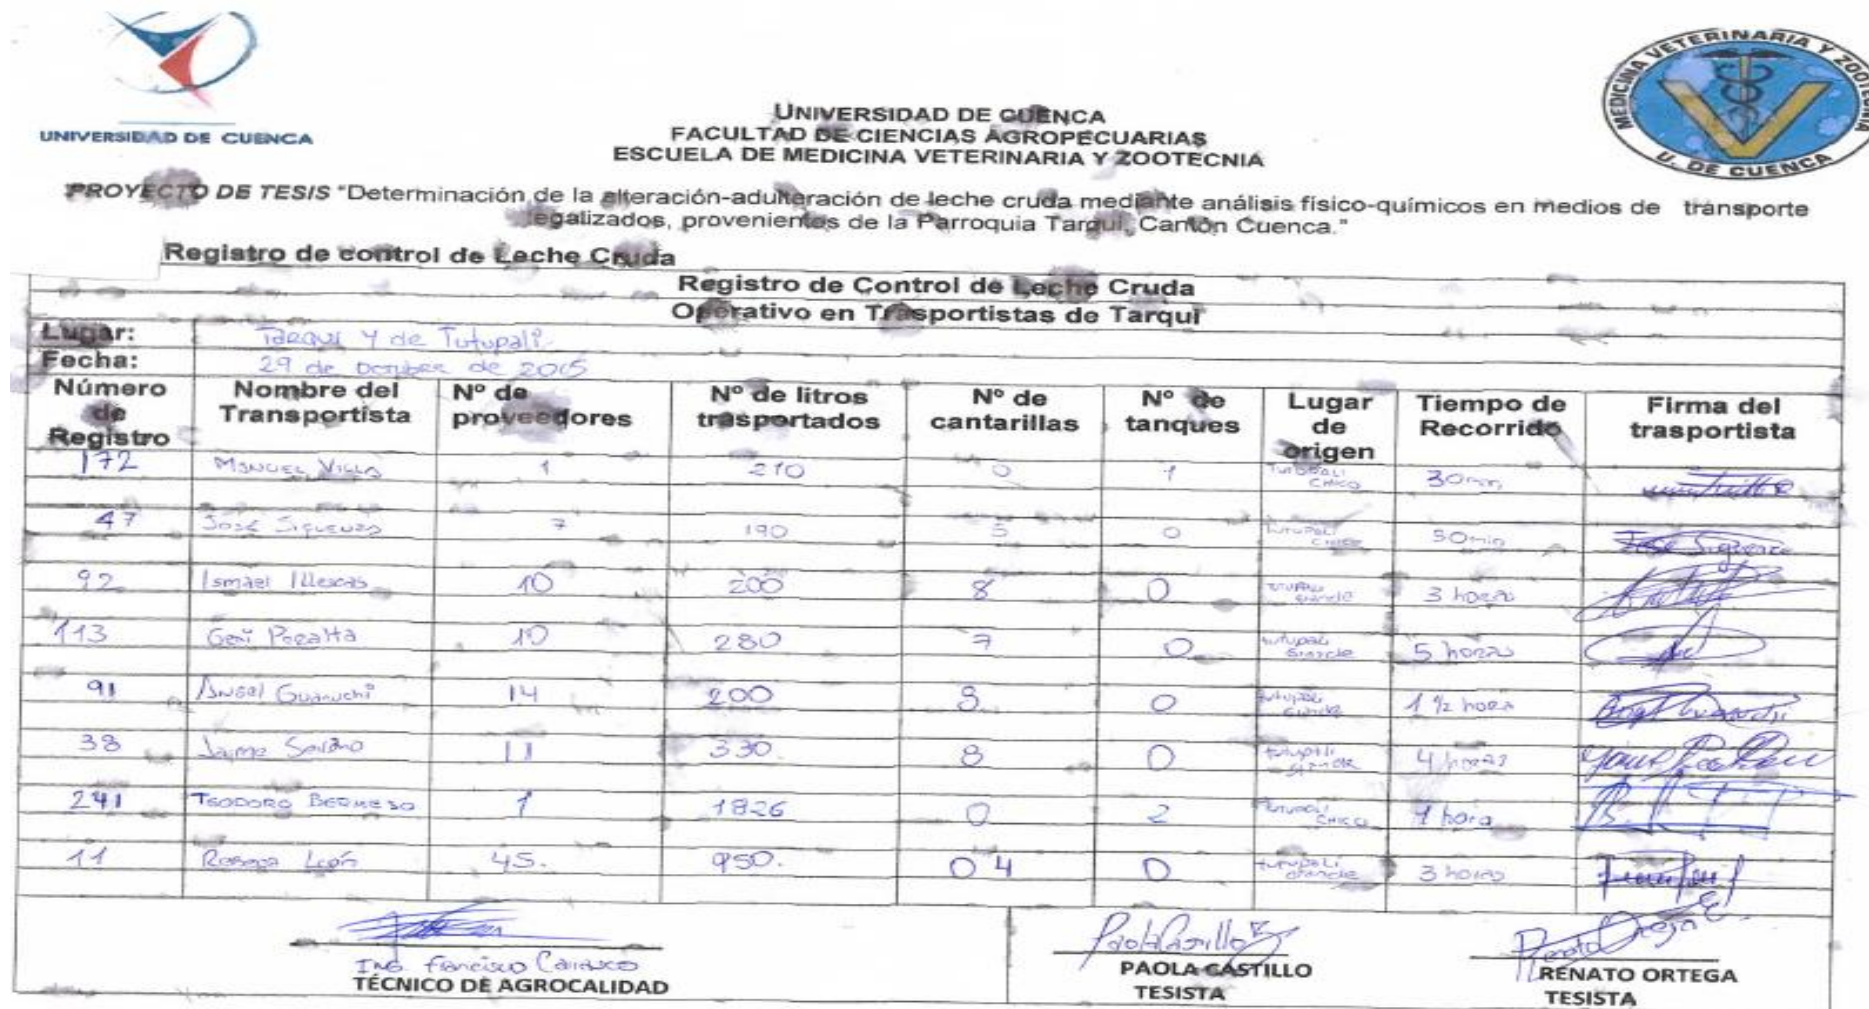 UNIVERSIDAD DE CUENCA
MEDICINA VETERINARIA Y ZOOTECNIA
U. DE CUENCA
UNIVERSIDAD DE CUENCA
FACULTAD DE CIENCIAS AGROPECUARIAS
ESCUELA DE MEDICINA VETERINARIA Y ZOOTECNIA
PROYECTO DE TESIS "Determinación de la alteración-adulteración de leche cruda mediante análisis físico-químicos en medios de transporte
legalizados, provenientes de la Parroquia Tarqui, Cantón Cuenca."
Registro de control de Leche Cruda
Registro de Control de Leche Cruda
Operativo en Trasportistas de Tarqui
Lugar: Tarqui y de Tutupali
Fecha: 29 de octubre de 2015
Número de Registro Nombre del Transportista Nº de proveedores Nº de litros trasportados Nº de cantarillas Nº de tanques Lugar de origen Tiempo de Recorrido Firma del trasportista
172 Manuel Villa 1 210 0 1 Tutupali Chico 30 min
47 José Siguenza 7 190 5 0 Tutupali Chico 50 min José Siguenza
92 Ismael Illescas 10 200 8 0 Tutupali Grande 3 horas
113 Peralta 10 280 7 0 Tutupali Grande 5 horas
91 Angel Guanuchi 14 200 8 0 Tutupali Grande 1 1/2 hora
38 Jaime 11 330. 8 0 Tutupali Grande 4 horas
241 Teodoro Bermejo 1 1826 0 2 Tutupali Chico 1 hora
11 León 45. 950. 04 0 Tutupali Grande 3 horas
Ing. Francisco Carrasco
TÉCNICO DE AGROCALIDAD
Paola Castillo
PAOLA CASTILLO
TESISTA
Renato Ortega
RENATO ORTEGA
TESISTA